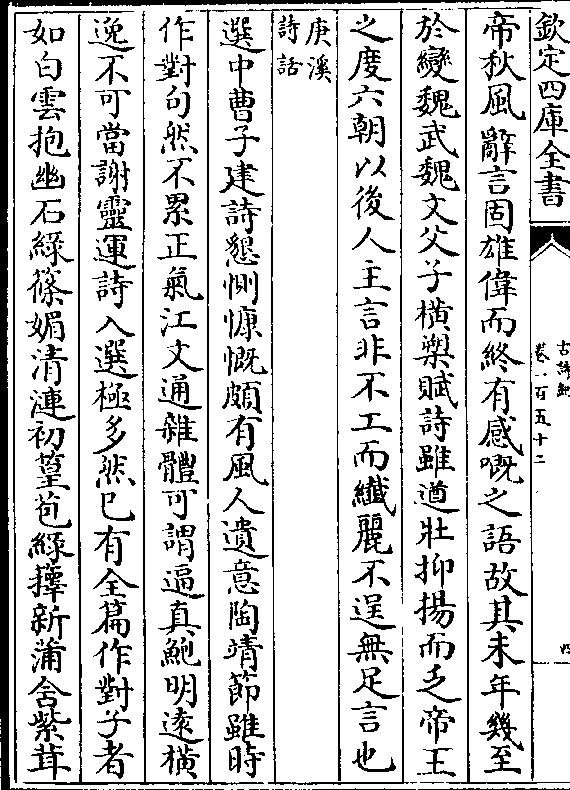 欽定四庫全書
古詩紀
卷一百五十二
四
帝秋風辭言固雄偉而終有感嘅之語故其末年幾至
於變魏武魏文父子橫槊賦詩雖遒壯抑揚而乏帝王
之度六朝以後人主言非不工而纖麗不逞無足言也
庚溪
詩話
選中曹子建詩懇惻慷慨頗有風人遺意陶靖節雖時
作對句然不累正氣江文通雜體可謂逼真鮑明遠橫
逸不可當謝靈運詩入選極多然已有全篇作對子者
如白雲抱幽石綠篠媚清漣初篁苞綠籜新蒲含紫茸